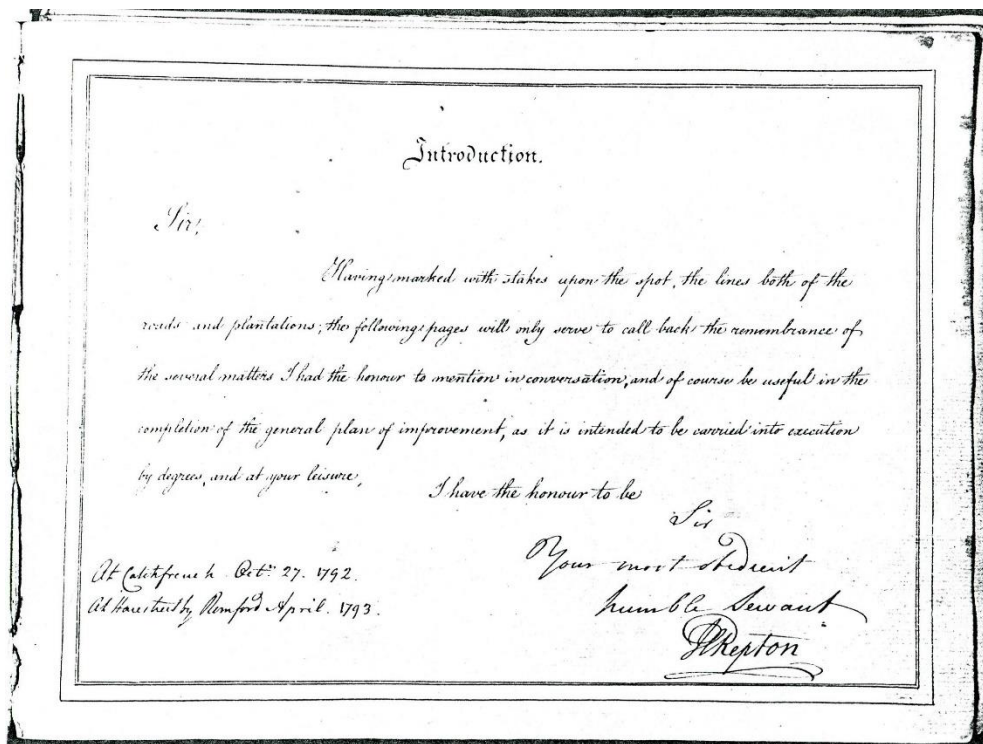 Introduction.
Sir,
Having marked with stakes upon the spot, the lines both of the
roads and plantations; the following pages will only serve to call back the remembrance of
the several matters I had the honour to mention in conversation, and of course be useful in the
completion of the general plan of improvement, as it is intended to be carried into execution
by degrees, and at your leisure,
I have the honour to be
Sir
Your most obedient
humble Servant
HRepton
At Catchfrench Octr. 27. 1792.
At Harestreet by Romford April. 1793.